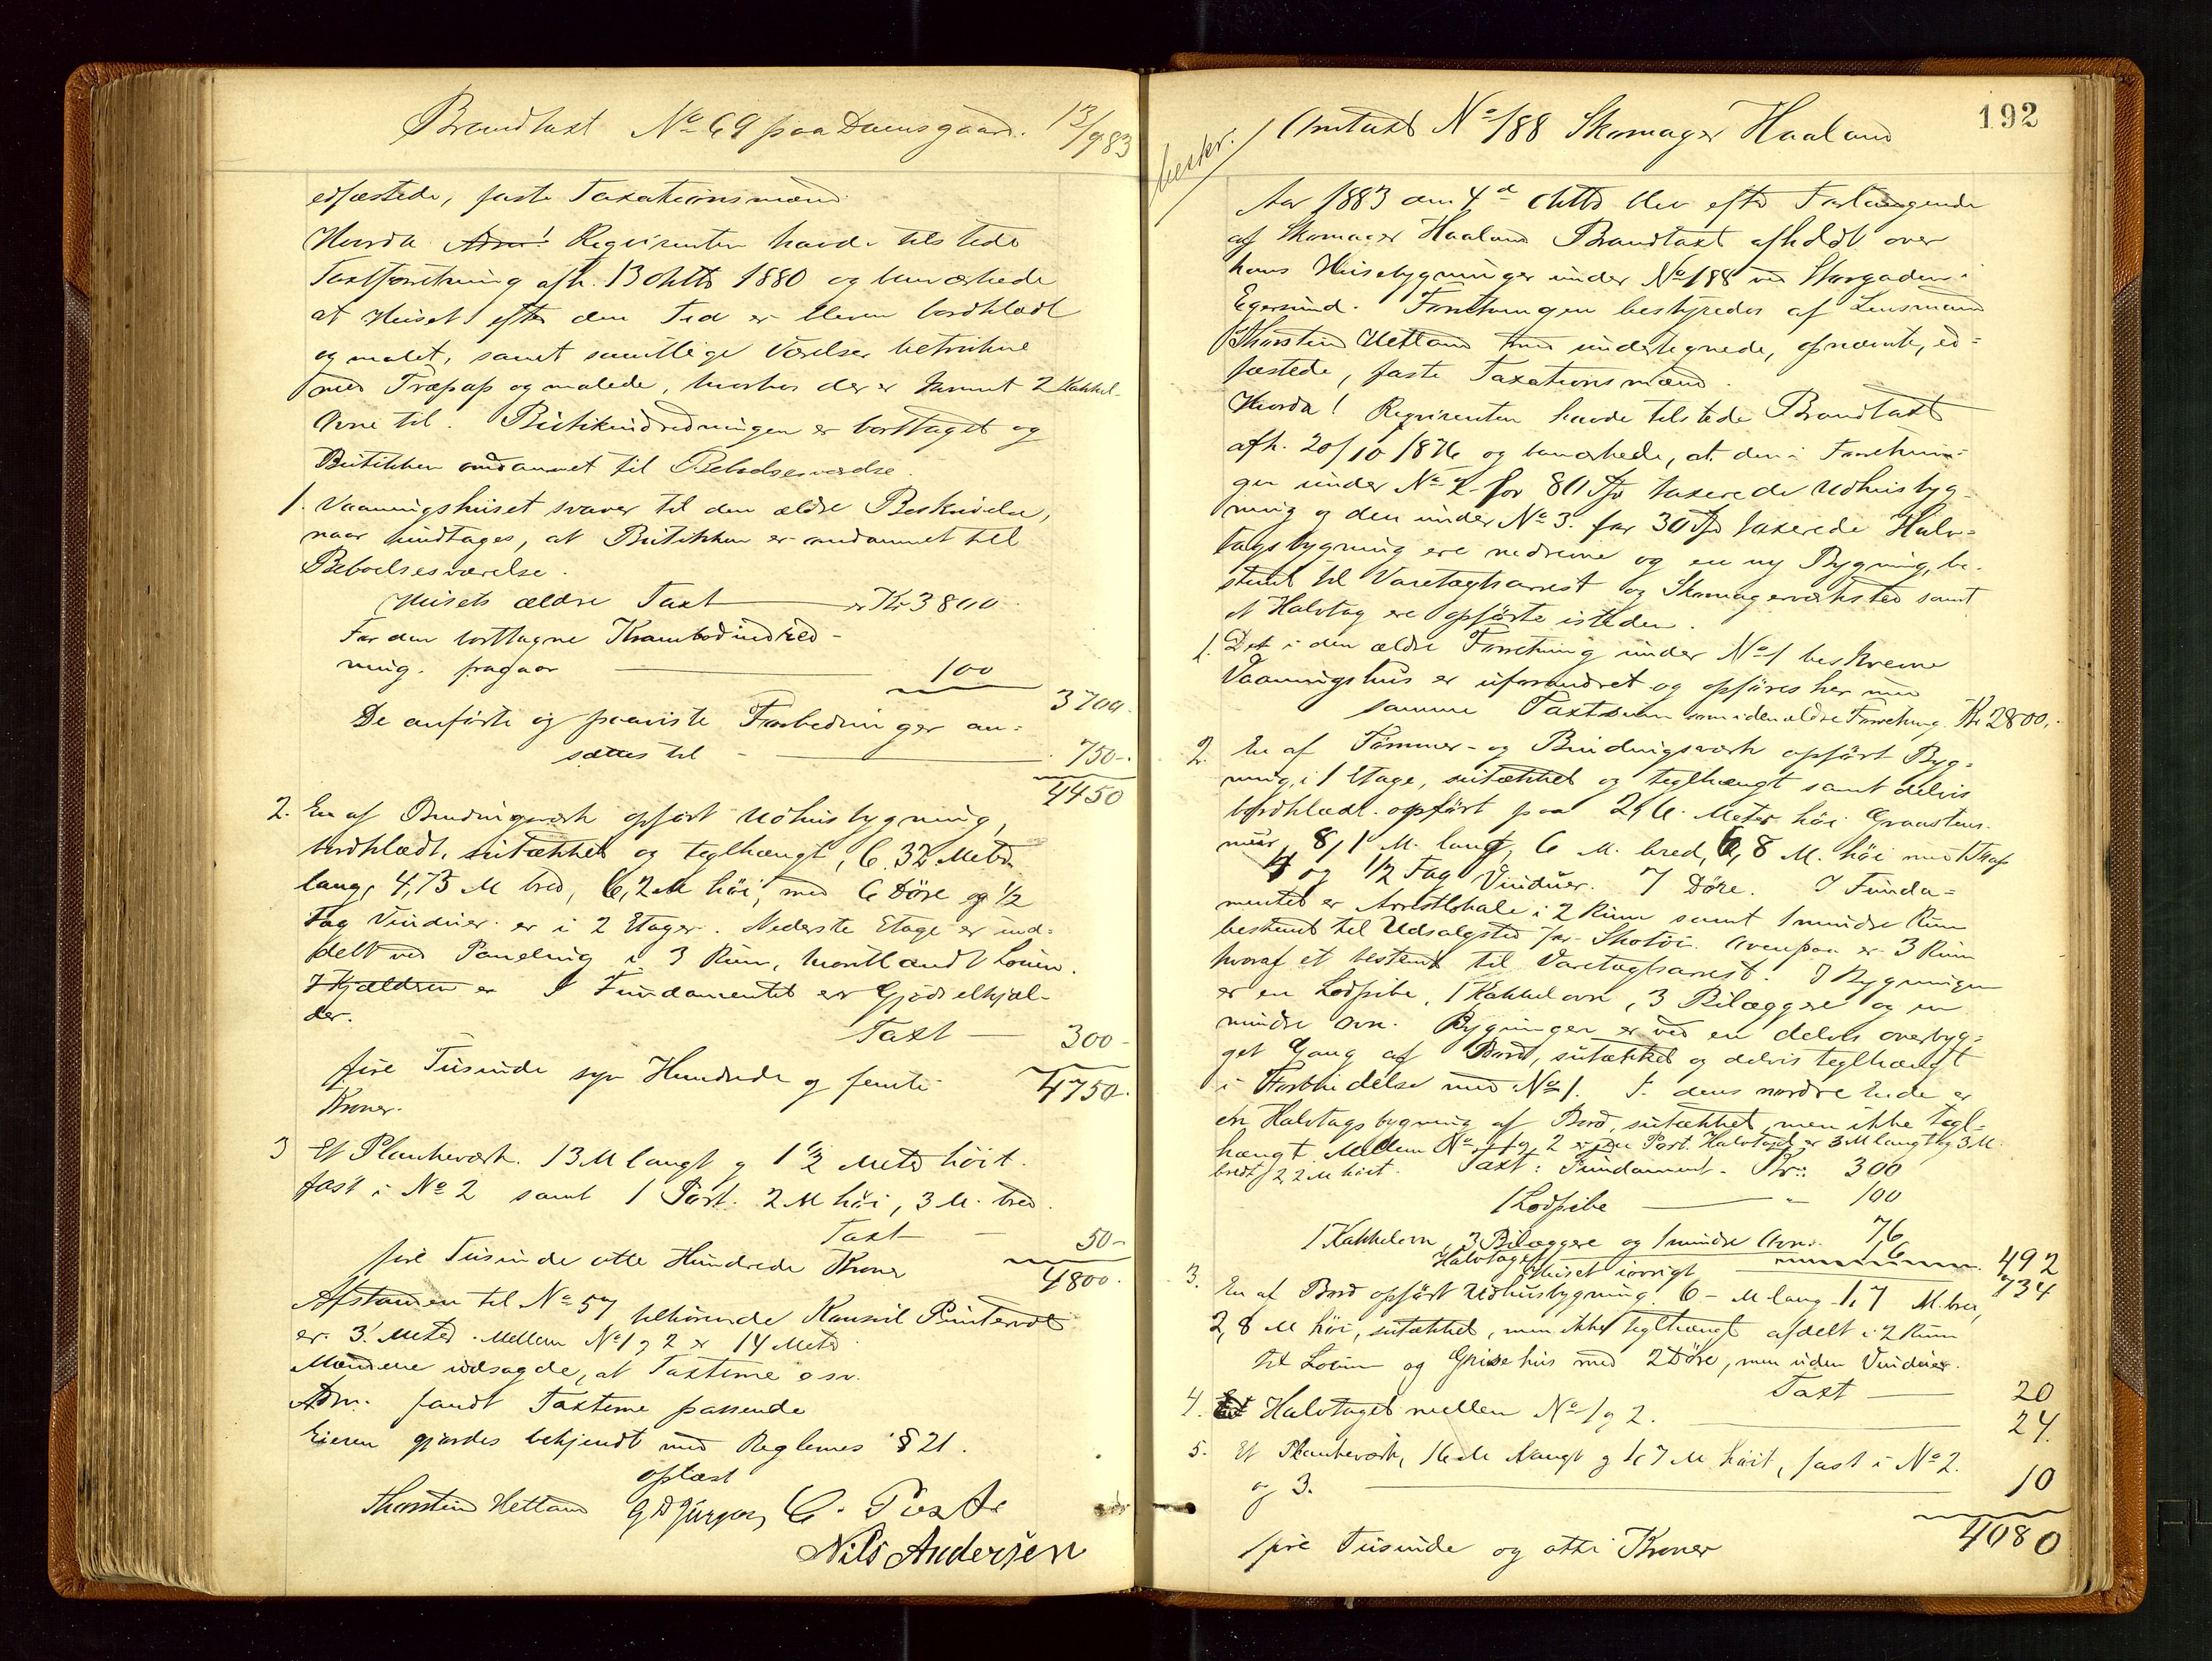 Brandtaxt No 69 paa Damsgaard. 13/9 83
edfæstede, faste Taxationsmænd.
Hvorda Adm! Reqvirenten havde tilstede
Taxtforretning afh. 13 Oktb 1880 og bemærkede
at Huset efter den Tid er bleven bordklædt
og malet, samt samtlige Værelser betrukne
med Træpap og malede, hvorhos der er kommet 2 Kakkel-
ovne til. Butikindredningen er borttaget og
Butikken omdannet til Beboelsesværelse.
1. Vaaningshuset svarer til den ældre Beskrivelse,
naar undtages, at Butikken er omdannet til
Beboelsesværelse.
Husets ældre Taxt er Kr 3800
For den borttagne Krambodindred-
ning fragaar 100
3700.
De anførte og paaviste Forbedringer an-
sættes til 750-
4450
2. En af Bindingsværk opført Udhusbygning,
bordklædt, sutækket og teglhængt, 6,32 Meter
lang, 4,75 M bred, 6,2 M høi, med 6 Døre og 1/2
Fag Vinduer er i 2 Etager. Nederste Etage er ind-
delt ved Paneling i 3 Rum, hvoriblandt Locum.
I Kjælderen er I Fundamentet er Gjødselkjæl-
der.
Taxt 300-
fire Tusinde syv Hundrede og femti 4750-
Kroner.
3 Et Plankeværk 13 M langt og 1 1/2 Meter høit.
fast i No 2 samt 1 Port. 2 M høi, 3 M. bred.
Taxt 50-
fire Tusinde otte Hundrede Kroner 4800.
Afstanden til No 57 tilhørende Konsul Puntervold
er 3 Meter. Mellem No 1 og 2 er 14 Meter
Mændene udsagde, at Taxterne osv.
Adm. fandt Taxterne passende
Eieren gjordes bekjendt med Reglernes § 21.
oplæst
Thorsten Hetland G D Jürgens C.
Nils Andersen
192
beskr.
Omtaxt No 188 Skomager Haaland
Aar 1883 den 4de Oktb blev efter Forlangende
af Skomager Haaland Brandtaxt afholdt over
hans Husebygninger under No 188 ved Storgaden i
Egersund. Forretningen bestyredes af Lensmand
Thorsten Hetland med undertegnede, opnævnte, ed-
fæstede, faste Taxationsmænd.
Hvorda! Reqvirenten havde tilstede Brandtaxt
afh. 20/10 1876 og bemærkede, at den i Forretnin-
gen under No 2 for 80 Spd taxerede Udhusbyg-
ning og den under No 3. for 30 Spd taxerede Halv-
tagsbygning ere nedrevne og en ny Bygning, be-
stemt til Varetægtsarrest og Skomagerværksted samt
et Halvtag ere opførte isteden.
1. Det i den ældre Forretning under No 1 beskrevne
Vaaningshus er uforandret og opføres her med
samme Taxtsum som i den ældre Forretning Kr 2800.-
2. En af Tømmer- og Bindingsværk opført Byg-
ning, i 1 Etage, sutækket og teglhængt samt delvis
bordklædt opført paa 2,6 Meter høi Graastens-
mur, 8,1 M. lang, 6 M. bred, 6,8 M. høi med
4 og 1/2 Fag Vinduer. 7 Døre. I Funda-
mentet er Arrestlokale i 2 Rum samt 1 mindre Rum
bestemt til Udsalgsted for Skotøi. Ovenpaa er 3 Rum
hvoraf et bestemt til Varetægtsarrest. I Bygningen
er en Lodpibe, 1 Kakkelovn, 3 Bilæggere og en
mindre Ovn. Bygningen er ved en delvis overbyg-
get Gang af Bord, sutækket og delvis teglhængt
i Forbindelse med No 1. I dens nordre Ende er
en Halvtagsbygning af Bord, sutækket men ikke tegl-
hængt. Mellem No 1 og 2 er en Port. Halvtaget er 3 M langt og 3 M
bredt, 2,2 M høit. Taxt: Fundament Kr: 300
1 Lodpibe " 100
1 Kakkelovn, 3 Bilæggere og 1 mindre Ovn 76
Halvtaget 16 492
Huset iøvrigt 734
3. En af Bord opført Udhusbygning 6 - M lang 1,7 M. bred,
2,8 M høi, sutækket, men ikke teglhængt afdelt i 2 Rum
til Locum og Grisehus med 2 Døre, men uden Vinduer.
Taxt 20
4. Halvtaget mellem No 1 og 2. 24
5. Et Plankeværk, 16 M langt og 1,7 M høit, fast i No 2.
og 3. 10
4080
fire Tusinde og otti Kroner